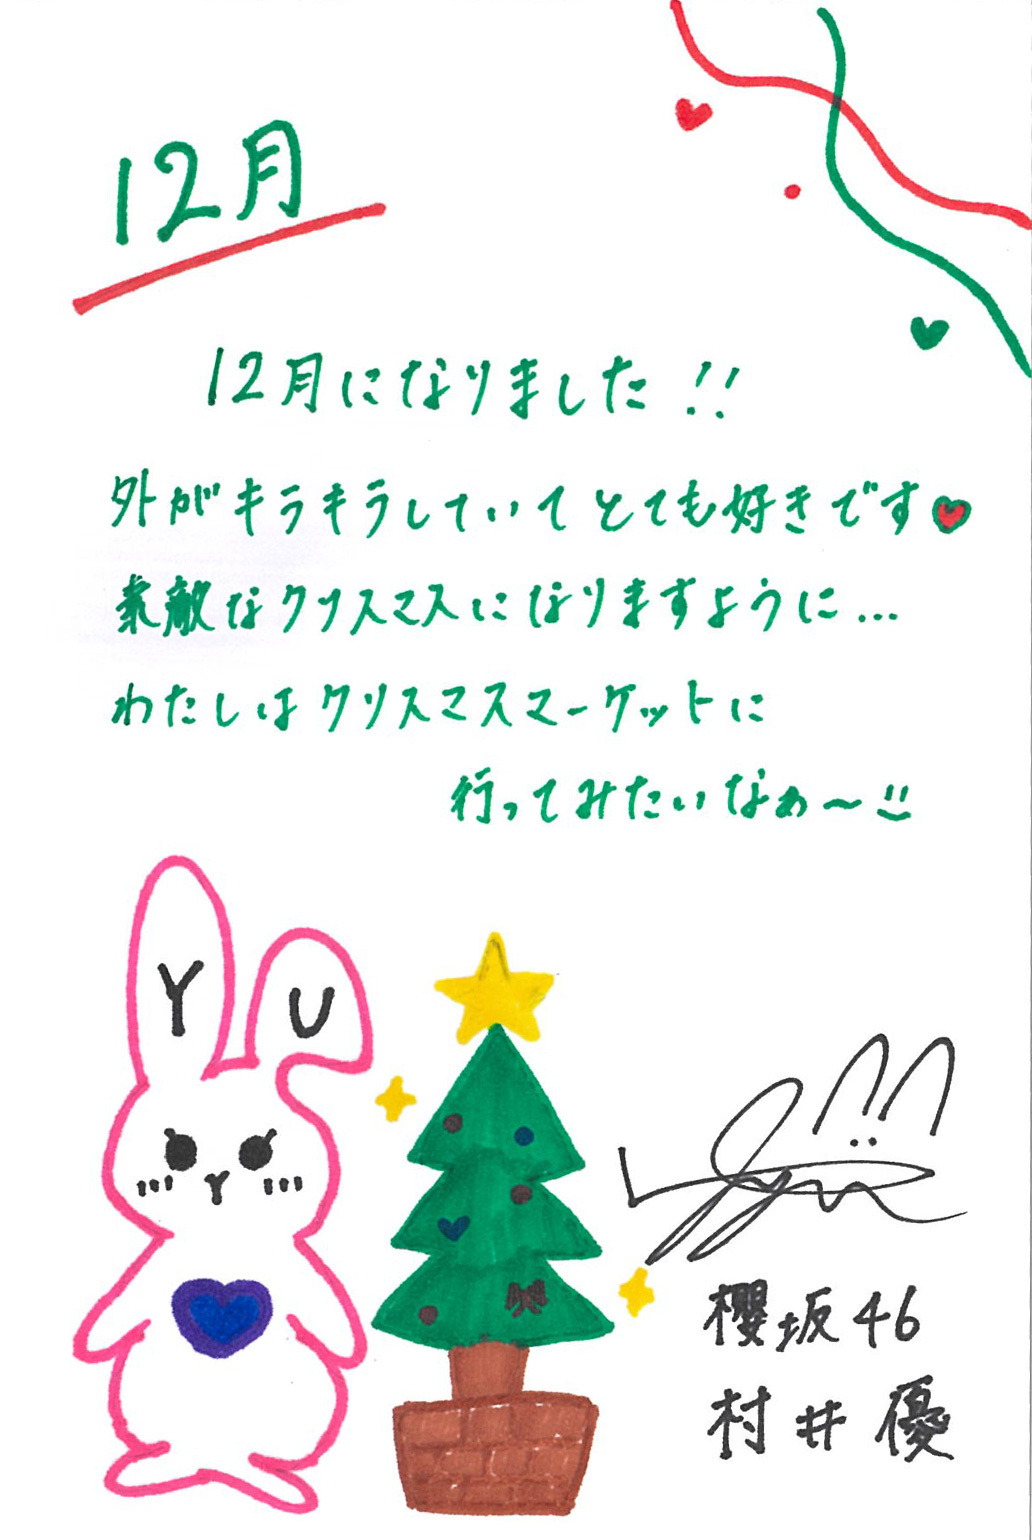 12月
12月になりました!!
外がキラキラしていてとても好きです
素敵なクリスマスになりますように...
わたしはクリスマスマーケットに
行ってみたいなぁ〜
Y U
櫻坂46
村井 優